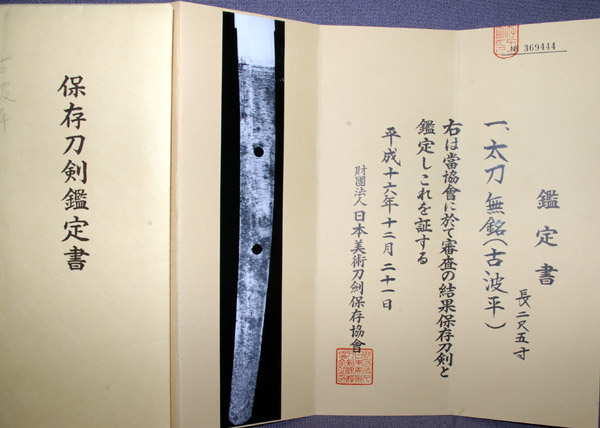 № 369444
鑑定書
一、太刀 無銘(古波平)
長二尺五寸
右は當協會に於て審査の結果保存刀剣と
鑑定しこれを証する
平成十六年十二月二十一日
財團法人 日本美術刀劍保存協會
保存刀剣鑑定書
古波平